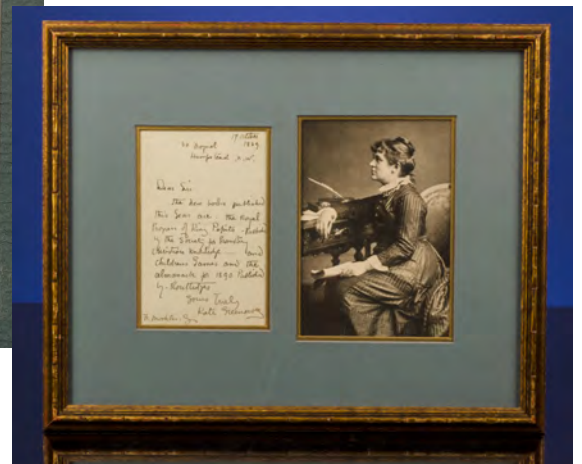 19 Octber
1889
Hampstead N.W.
Dear Sir
the new books published
this Year are the Royal
Progress of King Pepito - Published
by the Society for Promoting
Christian Knowledge - and
Childrens Games and the
almanack for 1890 Published
by Routledges
Yours Truly
Kate Greenaway